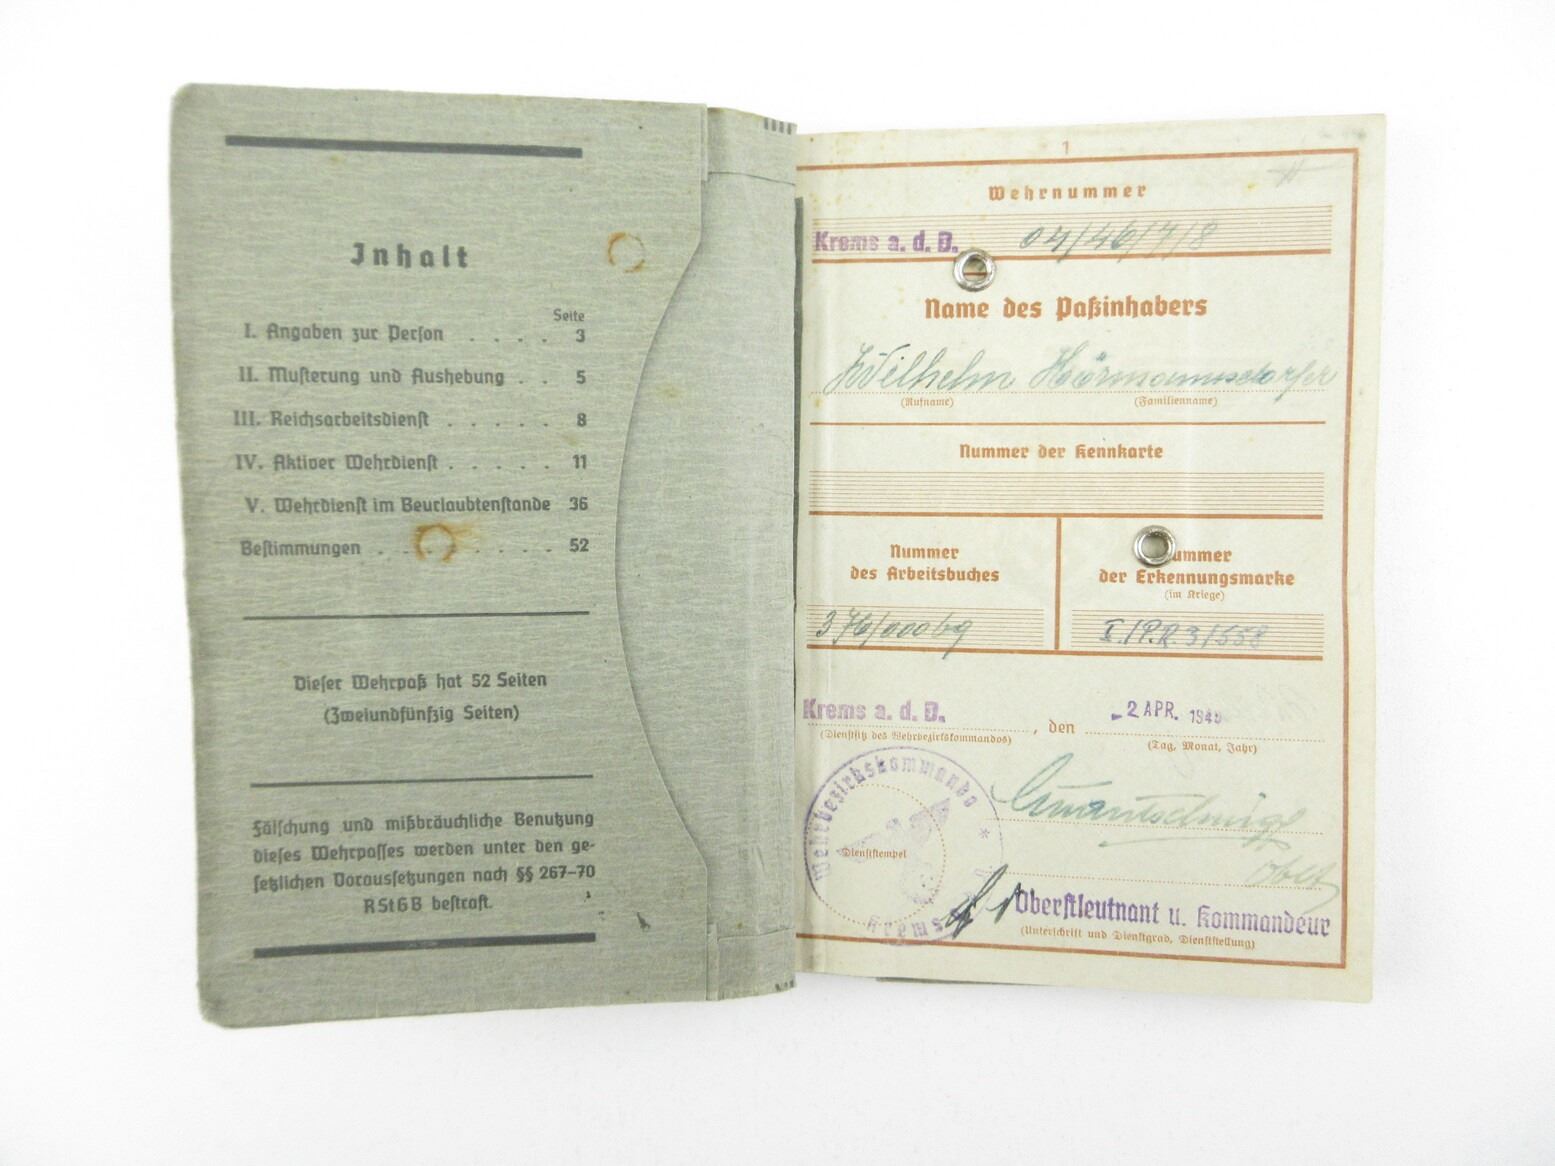 Inhalt
Seite
I. Angaben zur Person . . . . 3
II. Musterung und Aushebung . . 5
III. Reichsarbeitsdienst . . . . . 8
IV. Aktiver Wehrdienst . . . . . 11
V. Wehrdienst im Beurlaubtenstande 36
Bestimmungen . . . . . . . . 52
Dieser Wehrpaß hat 52 Seiten
(Zweiundfünfzig Seiten)
Fälschung und mißbräuchliche Benutzung
dieses Wehrpasses werden unter den ge-
setzlichen Voraussetzungen nach §§ 267–70
RStGB bestraft.
1
Wehrnummer
Krems a. d. D. 04/46/7/8
Name des Paßinhabers
Wilhelm Hörmannsdorfer
(Rufname) (Familienname)
Nummer der Kennkarte
Nummer
des Arbeitsbuches
376/00069
Nummer
der Erkennungsmarke
(im Kriege)
I./P.R.3/558
Krems a. d. D. , den -2 APR. 194
(Dienstsitz des Wehrbezirkskommandos) (Tag, Monat, Jahr)
Wehrbezirkskommando * Krems a. d.
Dienststempel
Oberstleutnant u. Kommandeur
(Unterschrift und Dienstgrad, Dienststellung)